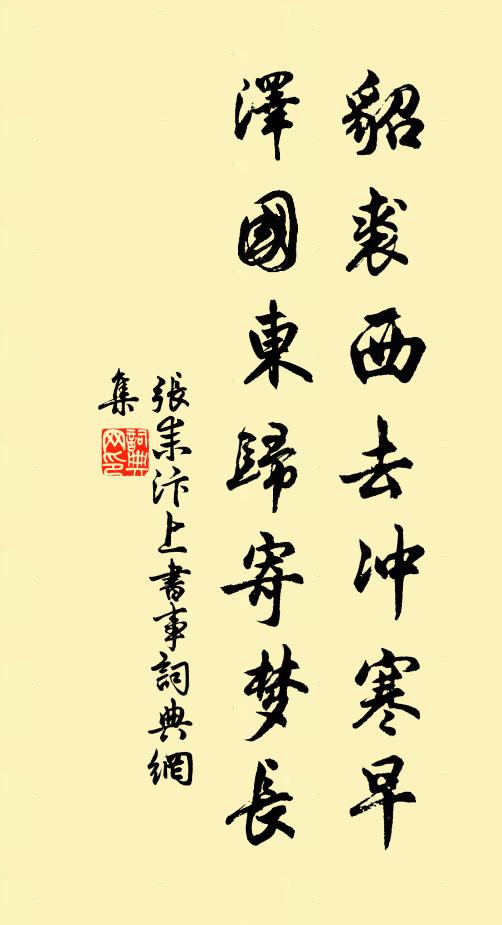 貂裘西去冲寒早
澤國東歸寄梦長
張耒汴上書事詞典網
集
詞典
网印